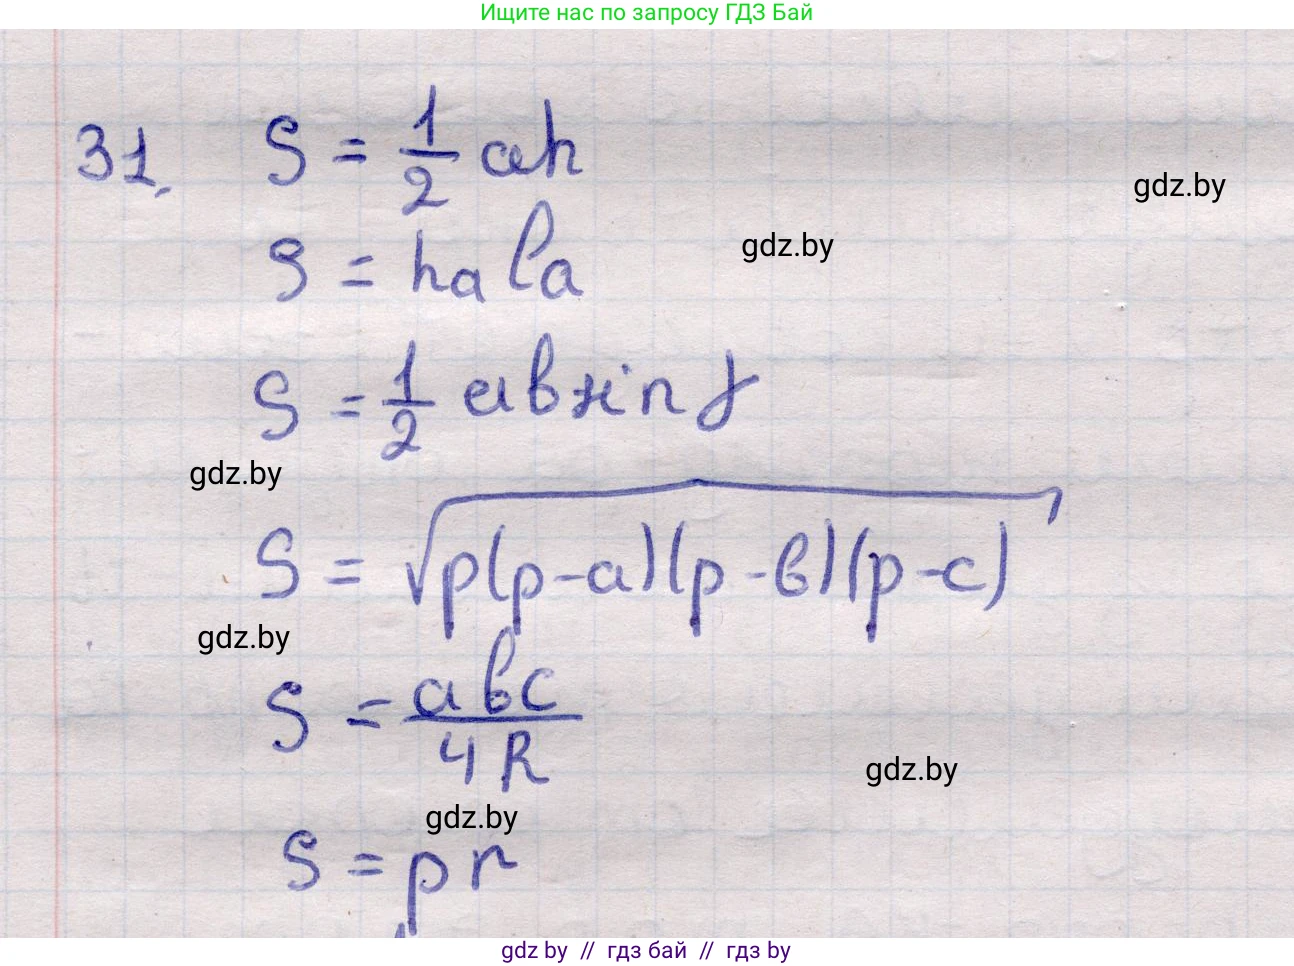 Ищите нас по запросу ГДЗ Бай
31. S = 1/2 ah
gdz.by
S = hₐ lₐ
gdz.by
S = 1/2 ab sin γ
gdz.by
S = √(p(p-a)(p-b)(p-c))
gdz.by
S = abc/4R
gdz.by
gdz.by
S = pr
gdz by // гдз бай // гдз by